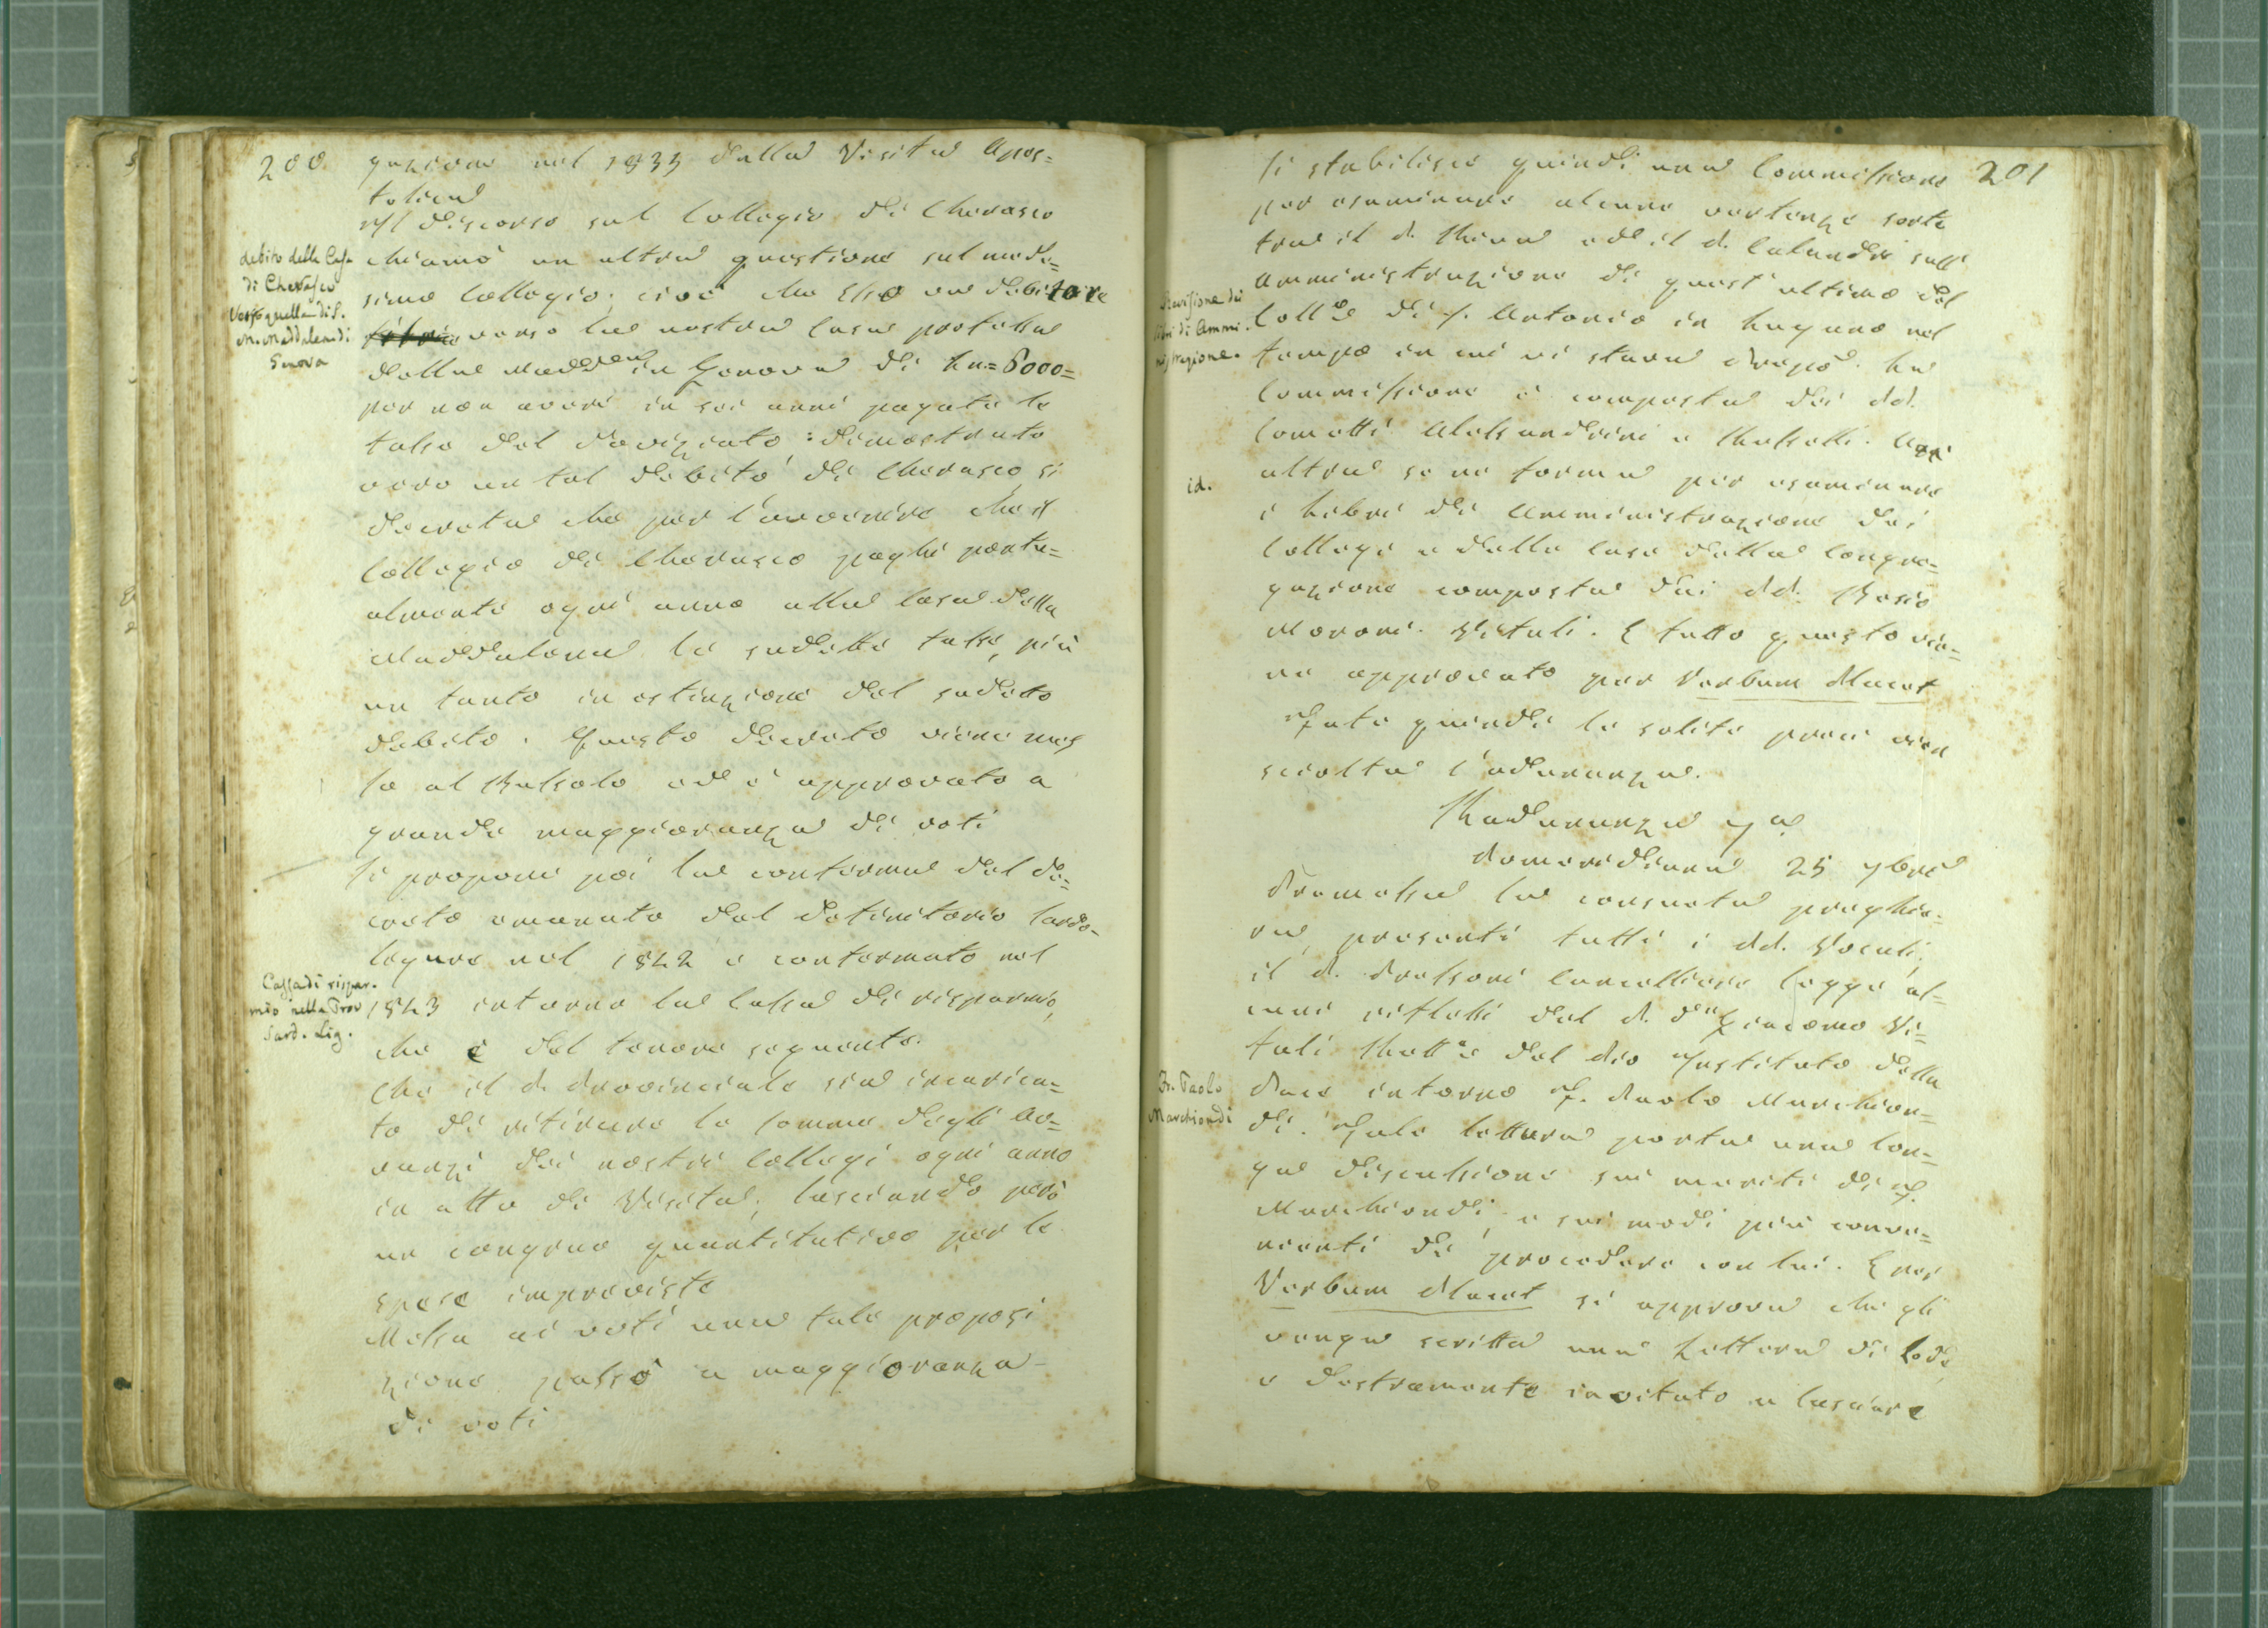 200
gazione nel 1835 dalla Visita Apos=
tolica
Il discorso sul Collegio di Cherasco
chiamò un altra questione sul mede=
simo Collegio; cioè che Esso era debitore
verso la nostra Casa professa
della Madd.ena in Genova di Ln= 8000=
per non avere in sei anni pagate le
tasse del Noviziato: dimostrato
vero un tal debito di Cherasco, si
decreta che per l'avvenire che il
Collegio di Cherasco paghi pontu=
almente ogni anno alla Casa della
Maddalena le sudette tasse, più
un tanto in estinzione del sudetto
debito. Questo decreto viene mes
so al Bussolo ed è approvato a
grande maggioranza di voti
Si propone poi la conferma del de=
creto emanato dal Definitorio Sardo-
Ligure nel 1842 e confermato nel
1843 intorno la Cassa di risparmio,
che è del tenore seguente.
Che il P. Provinciale sia incarica=
to di ritirare le somme degli Av=
vanzi dei nostri Collegi ogni anno
in atto di Visita; lasciando però
un congruo quantitativo per le
spese impreviste
Messa ai voti una tale proposi
zione passò a maggioranza
di voti
debito della Casa
di Cherasco
verso quella di S.
M. Maddalena di
Genova
Cassa di rispar-
mio nella Prov
Sard. Lig.
201
Si stabilisce quindi una Commissione
per esaminare alcune vertenze sorte
tra il P. Chiena ed il P. Calandri sull'
Amministrazione di quest'ultimo del
Coll.o di S. Antonio in Lugano nel
tempo in cui vi stava a capo. La
Commissione è composta dei PP.
Cometti Alessandrini e Massetti. Un'
altra se ne forma per esaminare
i Libri di Amministrazione dei
Collegi e delle Case della Congre=
gazione composta dei PP. Bosio
Morone. Vitali. E tutto questo vie=
ne approvato per Verbum Placet
Fate quindi le solite preci vien
sciolta l'adunanza.
Radunanza 7a
Pomeridiana 25 7bre
Premessa la consueta preghie=
ra, presenti tutti i PP. Vocali,
il P. Pressoni Cancelliere leggé al=
cuni riflessi del P. D.n Giacomo Vi=
tali Rett.e del Pio Istituto della
Pace intorno F. Paolo Marchion=
di. Tale lettura porta una lun=
ga discussione sui meriti di F.
Marchiondi, e sui modi più conve=
nienti di procedere con lui. E per
Verbum Placet si approva che gli
venga scritta una Lettera di Lode,
e destramente invitato a lasciare
Revisione dei
libri di Ammi-
nistrazione.
id.
Fr. Paolo
Marchiondi